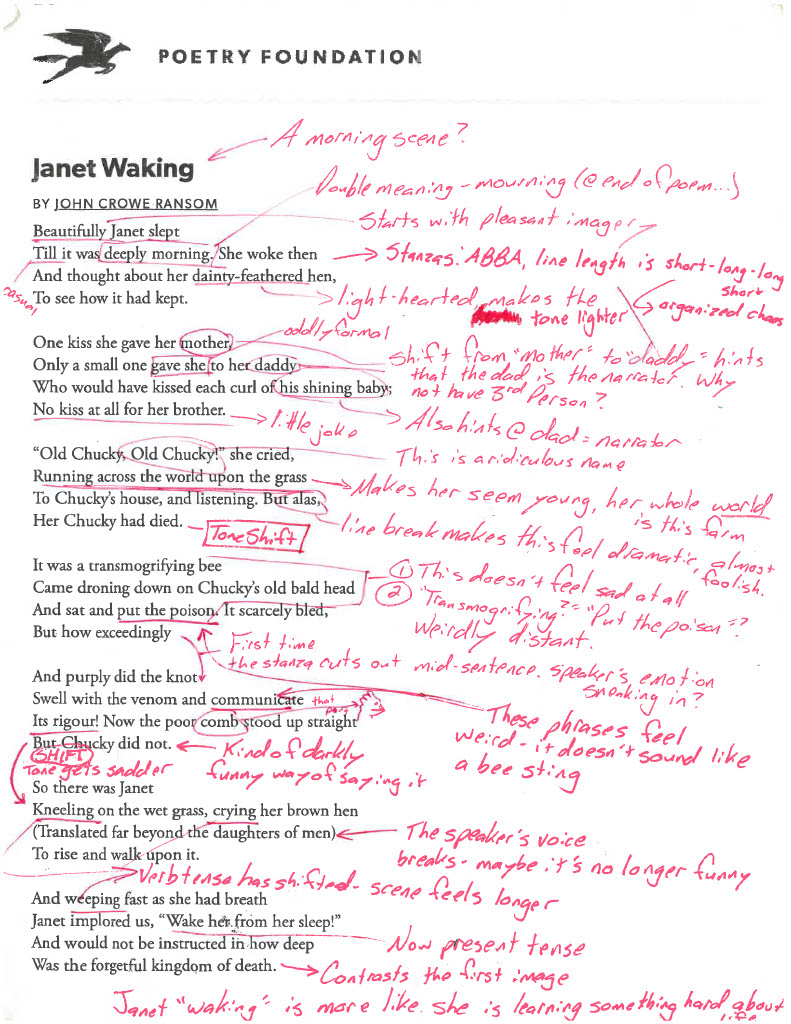 POETRY FOUNDATION
A morning scene?
Janet Waking
Double meaning - mourning (@ end of poem...)
BY JOHN CROWE RANSOM
Starts with pleasant imagery
Beautifully Janet slept
Till it was deeply morning. She woke then
Stanzas: ABBA, line length is short-long-long
short
And thought about her dainty-feathered hen,
organized chaos
To see how it had kept.
casual
light-hearted, makes the
tone lighter
oddly formal
One kiss she gave her mother,
Only a small one gave she to her daddy
Who would have kissed each curl of his shining baby;
No kiss at all for her brother.
Shift from "mother" to "daddy" = hints
that the dad is the narrator. Why
not have 3rd Person?
little joke
Also hints @ dad = narrator
"Old Chucky, Old Chucky!" she cried,
This is a ridiculous name
Running across the world upon the grass
Makes her seem young, her whole world
is this farm
To Chucky's house, and listening. But alas,
Her Chucky had died.
Tone Shift
line break makes this feel dramatic, almost
foolish.
It was a transmogrifying bee
Came droning down on Chucky's old bald head
And sat and put the poison. It scarcely bled,
But how exceedingly
1 This doesn't feel sad at all
2 "Transmogrifying?" = "Put the poison =?
Weirdly distant.
First time
the stanza cuts out mid-sentence. speaker's emotion
sneaking in?
And purply did the knot
Swell with the venom and communicate
that part
Its rigour! Now the poor comb stood up straight
But Chucky did not.
These phrases feel
weird - it doesn't sound like
a bee sting
Kind of darkly
funny way of saying it
SHIFT
Tone gets sadder
So there was Janet
Kneeling on the wet grass, crying her brown hen
(Translated far beyond the daughters of men)
To rise and walk upon it.
The speaker's voice
breaks - maybe it's no longer funny
Verb tense has shifted - scene feels longer
And weeping fast as she had breath
Janet implored us, "Wake her from her sleep!"
And would not be instructed in how deep
Was the forgetful kingdom of death.
Now present tense
Contrasts the first image
Janet "waking" is more like she is learning something hard about
life